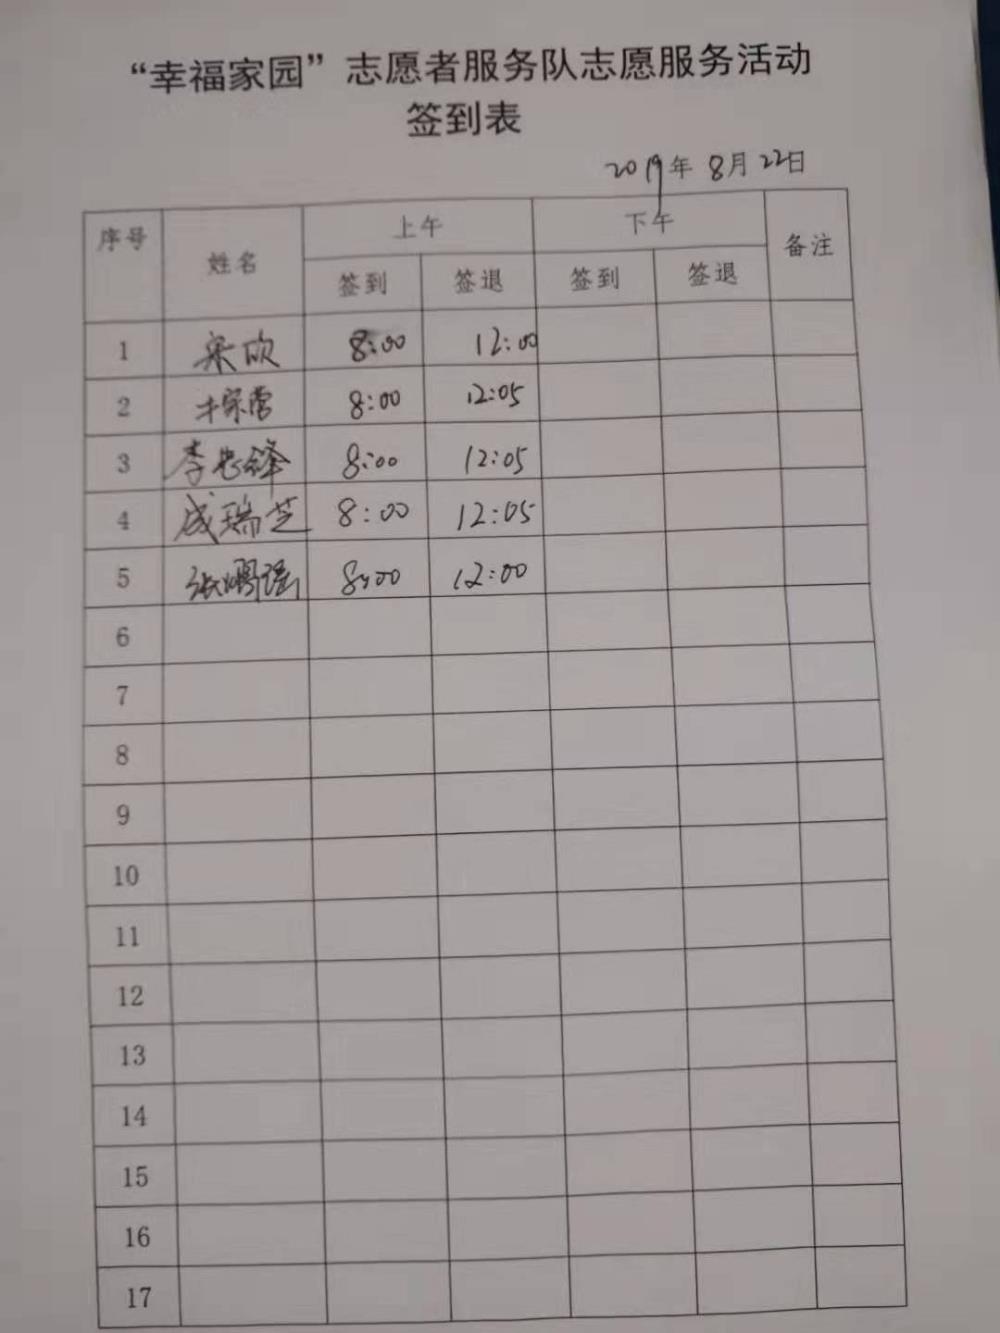 “幸福家园”志愿者服务队志愿服务活动
签到表
2019年 8月 22日
序号 姓名 上午 下午 备注
签到 签退 签到 签退
1 宋欣 8:00 12:00
2 8:00 12:05
3 李忠锋 8:00 12:05
4 成瑞芝 8:00 12:05
5 张鹏瑶 8:00 12:00
6
7
8
9
10
11
12
13
14
15
16
17